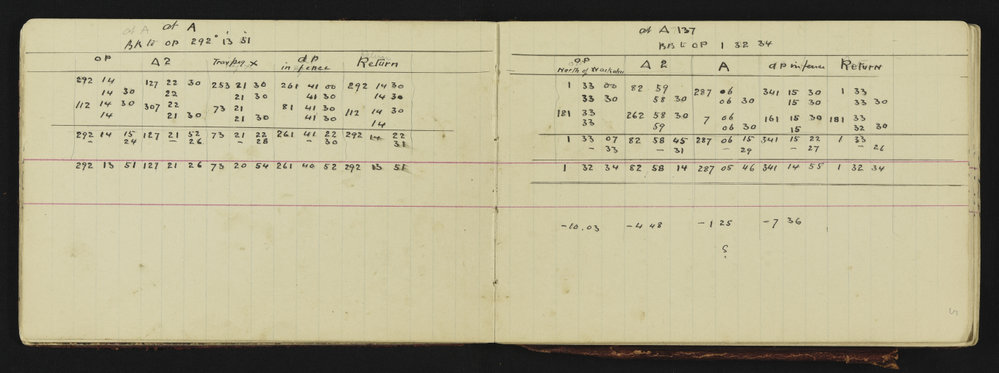 at A at A
BB to OP 292° 13 51
OP Δ2 Trav peg X dp in fence Return
292 14 127 22 30 253 21 30 261 41 00 292 14 30
14 30 22 21 30 41 30 14 30
112 14 30 307 22 73 21 81 41 30 112 14 30
14 21 30 21 30 41 30 14
292 14 15 127 21 52 73 21 22 261 41 22 292 14 22
– 24 – 26 – 28 – 30 31
292 13 51 127 21 26 73 20 54 261 40 52 292 13 51
at A 137
BB to OP 1 32 34
OP North of Δ2 A dp in fence Return
1 33 00 82 59 287 06 341 15 30 1 33
33 30 58 30 06 30 15 30 33 30
181 33 262 58 30 7 06 161 15 30 181 33
33 59 06 30 15 32 30
1 33 07 82 58 45 287 06 15 341 15 22 1 33
– 33 – 31 – 29 – 27 – 26
1 32 34 82 58 14 287 05 46 341 14 55 1 32 34
–10.03 –4 48 –1 25 –7 36